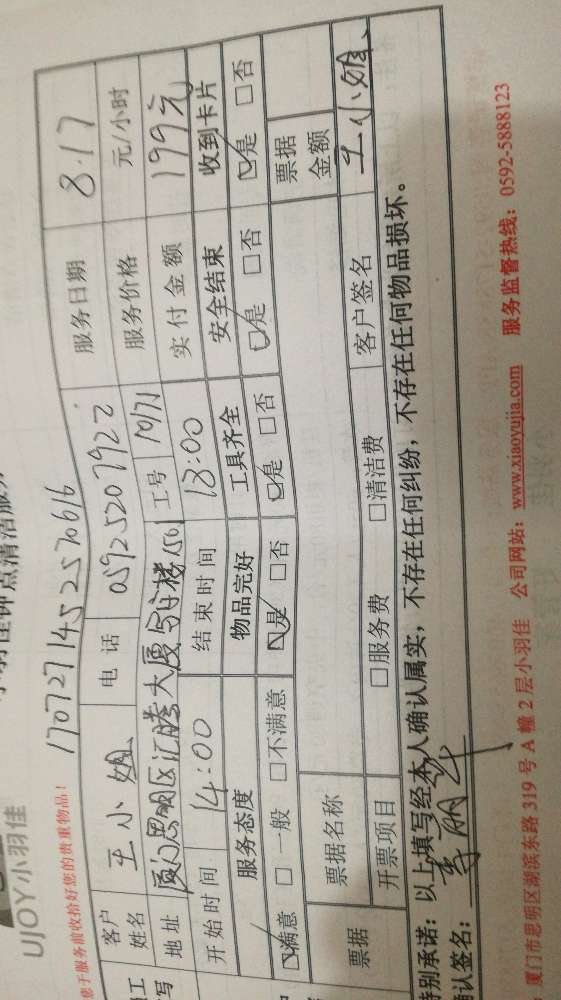 小羽佳钟点清洁服务
UJOY小羽佳
1707271452520616
您于服务前收拾好您的贵重物品!
客户姓名 王小姐 电话 05925207922 服务日期 8.17
地址 厦门思明区汇腾大厦写字楼1501 工号 服务价格 元/小时
开始时间 14:00 结束时间 18:00 实付金额 199元
服务态度 物品完好 工具齐全 安全结束 收到卡片
☑满意 □一般 □不满意 ☑是 □否 ☑是 □否 ☑是 □否 ☑是 □否
票据 票据名称 票据金额
开票项目 □服务费 □清洁费 客户签名 王小姐
特别承诺:以上填写经本人确认属实,不存在任何纠纷,不存在任何物品损坏。
确认签名:
厦门市思明区湖滨东路 319 号 A 幢 2 层小羽佳 公司网站:www.xiaoyujia.com 服务监督热线:0592-5888123